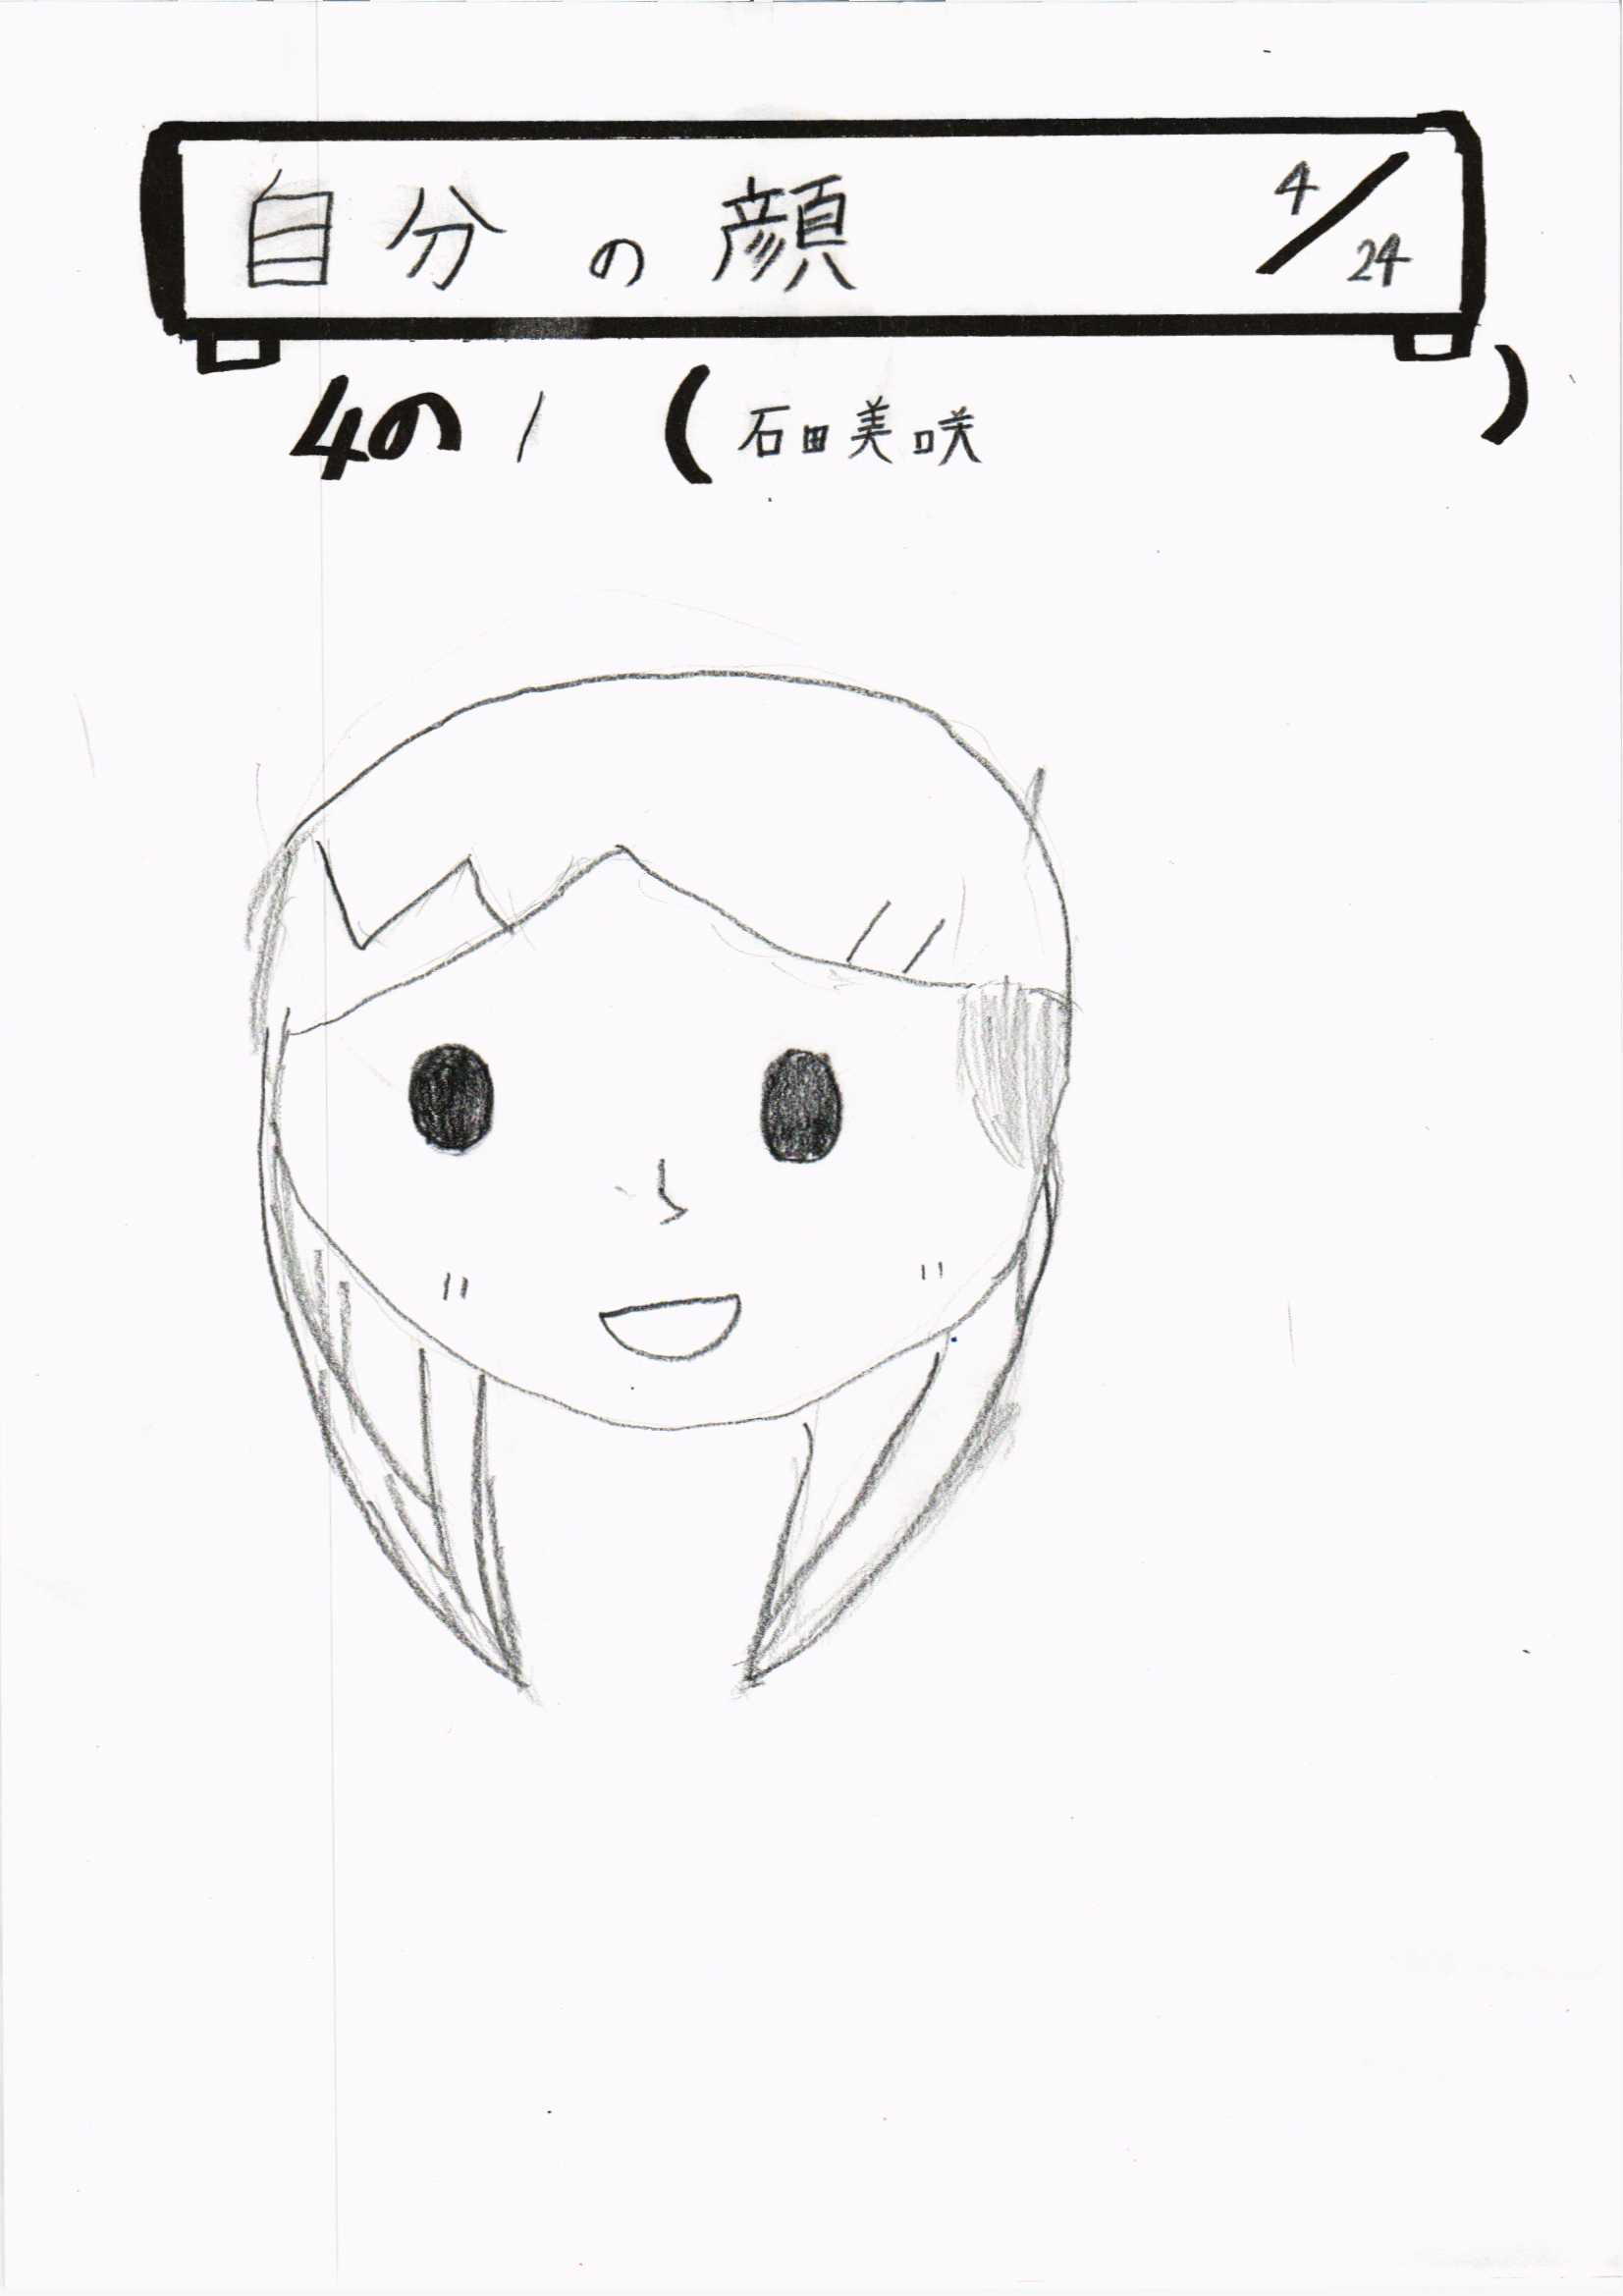 自分の顔 4/24
4の1 (石田美咲)